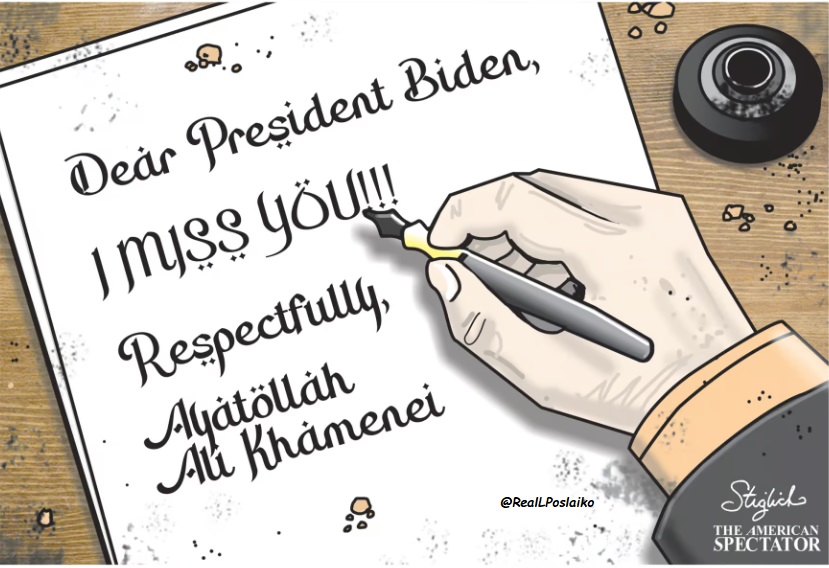 Dear President Biden,
I MISS YOU!!!
Respectfully,
Ayatollah
Ali Khamenei
@RealLPoslaiko
Stiglich
THE AMERICAN
SPECTATOR